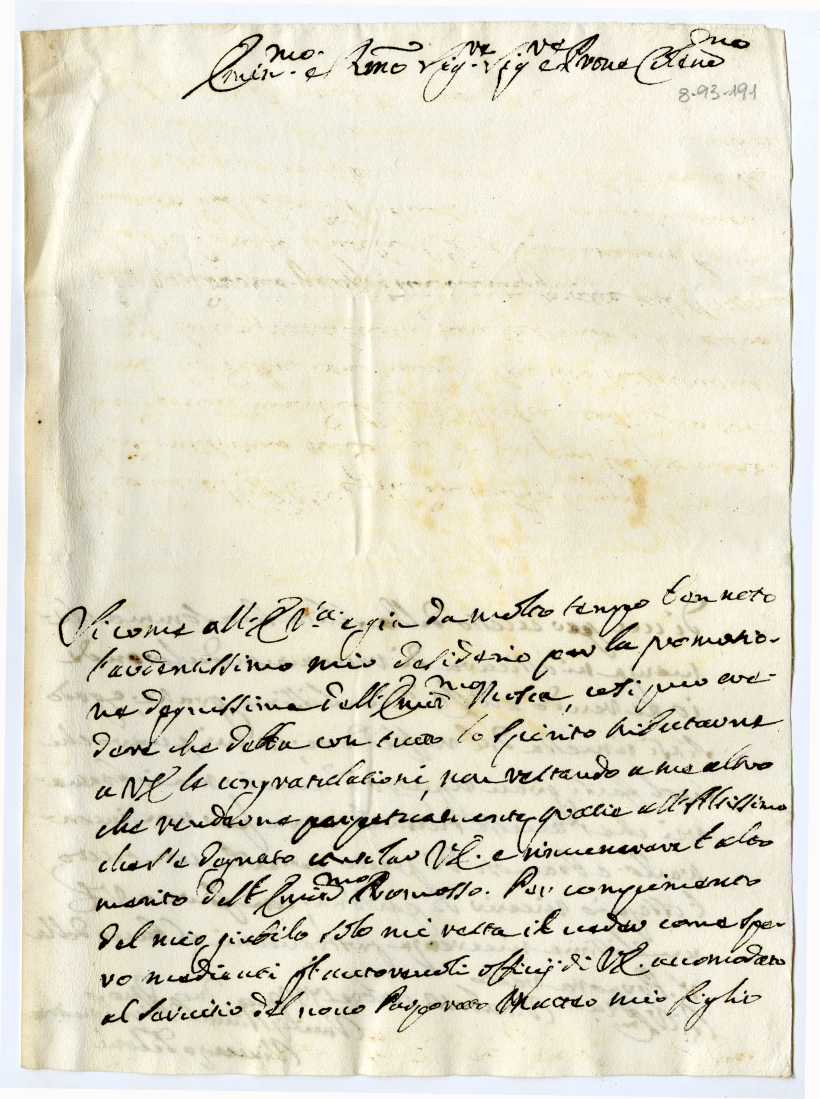 Emin.mo e R.mo Sig.re Sig.re e Prone Col.mo
8-93-191
Si come all'E. V.ra e gia da molto tempo ben noto
l'ardentissimo mio desiderio per la promotio-
ne degnissima dell'Emin.mo Nipote, cosi puo cre-
dere che debba con tutto lo Spirito tributarne
a V.E. le congratulationi, non restando a me altro
che renderne perpetuamente gratie all'Altissimo
che s'e degnato consolar V.E. e rimunerare l'alto
merito dell'Emin.mo Promosso. Per compimento
del mio giubilo solo mi resta il veder come spe-
ro medianti gl'autorevoli officij di V.E. accomodato
al servitio del novo Porporato Matteo mio figlio